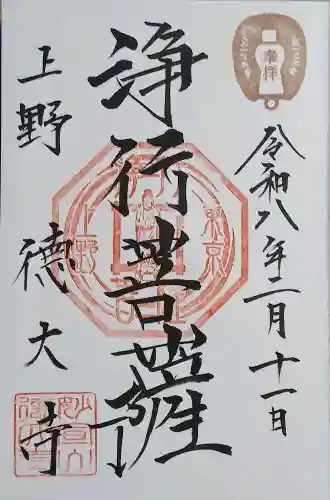 奉拝
令和八年二月十一日
浄行菩薩
東京
上野
上野 徳大寺